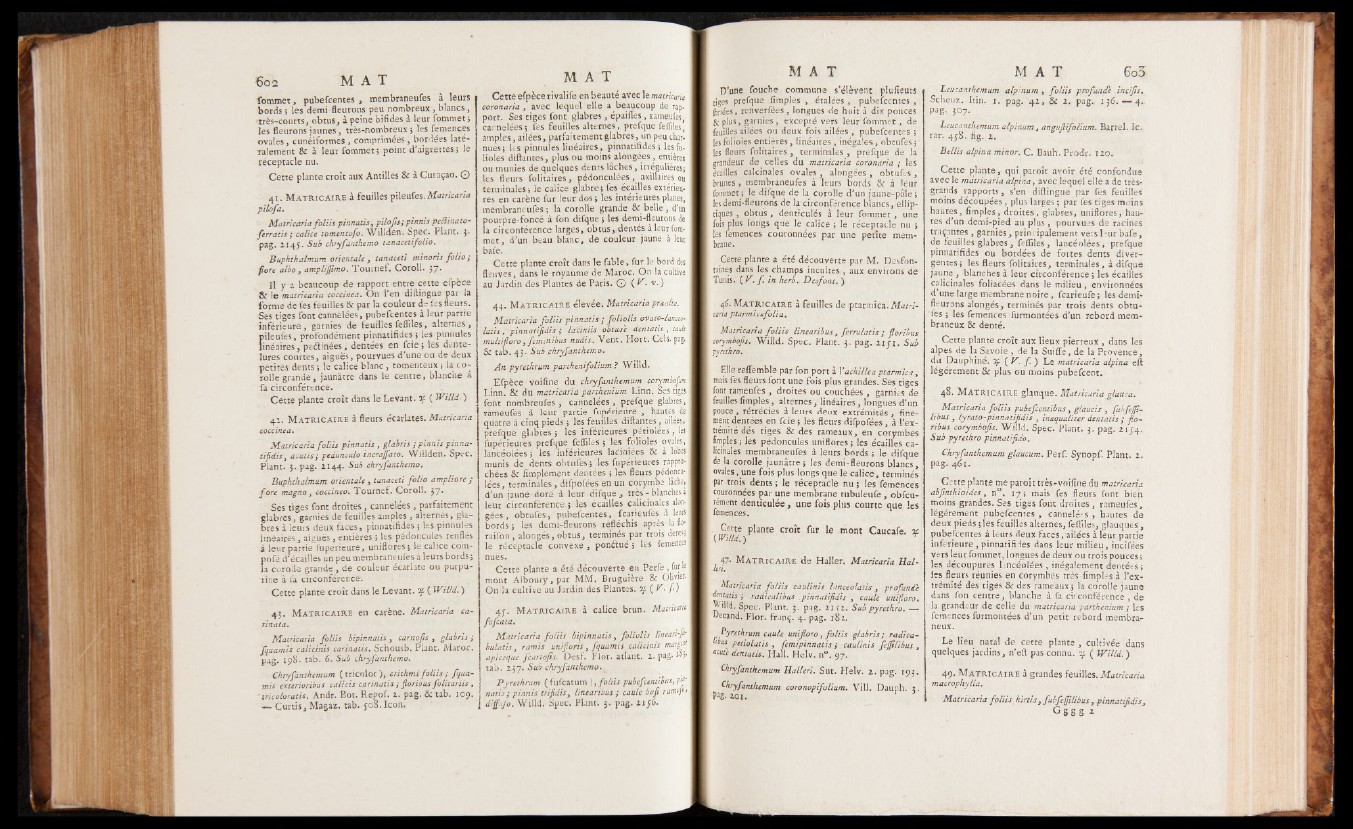 602 M A T
fommet, pubefcentes, membraneufes à leurs
bords; les demi-fleurons peu nombreux, blancs,
très-courts, obtus, à peine bifides à leur fommet;
les fleurons jaunes, très-nombreux; les femences
ovales, cunéiformes, comprimées, bordées laté-
ralement & à leur fommet; point d'aigrettes; le
réceptacle nu.
Cette plante croît aux Antilles & à Curaçao. ☉
41. MATRICAIRE à feuilles pileufes. Matricaria
pilofa.
Matricaria foliis pinnatis, pilofis; pinnis pectinato-
ferratis; calice tomentofo. Willden. Spec. Plant. 3.
pag. 2145. Sub chryfanthemo tanacetifolio.
Buphthalmum orientale, tanaceti minoris folio;
flore albo, ampliffimo. Tournef. Coroll. 37.
Il y a beaucoup de rapport entre cette efpèce
& le matricaria coccinea. On l'en diftingue par la
forme de fes feuilles & par la couleur de fes fleurs.
Ses tiges font cannelées, pubefcentes à leur partie
inférieure, garnies de feuilles feffiles, alternes,
pileufes, profondément pinnatifides; les pinnules
linéaires, pectinées, dentées en fcie; les dente-
lures courtes, aiguës, pourvues d'une ou de deux
petites dents; le calice blanc, tomenteux; la co-
rolle grande, jaunâtre dans le centre, blanche à
fa circonférence.
Cette plante croît dans le Levant. ♃ (Willd.)
42. MATRICAIRE à fleurs écarlates. Matricaria
coccinea.
Matricaria foliis pinnatis, glabris; pinnis pinna-
tifidis, acutis; pedunculo incraffato. Willden. Spec.
Plant. 3. pag. 2144. Sub chryfanthemo.
Buphthalmum orientale, tanaceti folio ampliore;
flore magno, coccineo. Tournef. Coroll. 37.
Ses tiges font droites, cannelées, parfaitement
glabres, garnies de feuilles amples, alternes, gla-
bres à leurs deux faces, pinnatifides; les pinnules
linéaires, aiguës, entières; les pédoncules renflés
à leur partie fupérieure, uniflores; le calice com-
pofé d'écailles un peu membraneufes à leurs bords;
la corolle grande, de couleur écarlate ou purpu-
rine à fa circonférence.
Cette plante croît dans le Levant. ♃ (Willd.)
43. MATRICAIRE en carène. Matricaria ca-
rinata.
Matricaria foliis bipinnatis, carnofis, glabris;
fquamis calicinis carinatis. Schousb. Plant. Maroc.
pag. 198. tab. 6. Sub chryfanthemo.
Chryfanthemum (tricolor), crithmi foliis; fqua-
mis exterioribus calicis carinatis; floribus folitariis,
tricoloratis. Andr. Bot. Repof. 2. pag. & tab. 109.
— Curtis, Magaz. tab. 508. Icon.
M A T
Cette efpèce rivalife en beauté avec le matricaria
coronaria, avec lequel elle a beaucoup de rap-
port. Ses tiges font glabres, épaiffes, rameufes,
cannelées; fes feuilles alternes, prefque feffiles,
amples, ailées, parfaitement glabres, un peu char-
nues; les pinnules linéaires, pinnatifides; les fo-
lioles diftantes, plus ou moins alongées, entières
ou munies de quelques dents lâches, irrégulières;
les fleurs folitaires, pédonculées, axillaires ou
terminales; le calice glabre; fes écailles extérieu-
res en carène fur leur dos; les intérieures planes,
membraneufes; la corolle grande & belle, d'un
pourpre-foncé à fon difque; les demi-fleurons de
la circonférence larges, obtus, dentés à leur fom-
met, d'un beau blanc, de couleur jaune à leur
bafe.
Cette plante croît dans le fable, fur le bord des
fleuves, dans le royaume de Maroc. On la cultive
au Jardin des Plantes de Paris. ☉ (V. v.)
44. MATRICAIRE élevée. Matricaria praealta.
Matricaria foliis pinnatis; foliolis ovato-lanceo-
latis, pinnatifidis; laciniis obtusè dentatis, caule
multifloro; feminibus nudis. Vent. Hort. Cels. pag.
& tab. 43. Sub chryfanthemo.
An pyrethrum parthenifolium? Willd.
Efpèce voifine du chryfanthemum corymbofum
Linn. & du matricaria parthenium Linn. Ses tiges
font nombreufes, cannelées, prefque glabres,
rameufes à leur partie fupérieure, hautes de
quatre à cinq pieds; les feuilles diftantes, ailées,
prefque glabres; les inférieures pétiolées, les
fupérieures prefque feffiles; les folioles ovales,
lancéolées; les inférieures laciniées & à lobes
munis de dents obtufes; les fupérieures rappro-
chées & fimplement dentées; les fleurs pédoncu-
lées, terminales, difpofées en un corymbe lâche,
d'un jaune doré à leur difque, très-blanches à
leur circonférence; les écailles calicinales alon-
gées, obtufes, pubefcentes, fcarieufes à leurs
bords; les demi-fleurons réfléchis après la flo-
raifon, alongés, obtus, terminés par trois dents;
le réceptacle convexe, ponctué; les femences
nues.
Cette plante a été découverte en Perfe, fur le
mont Alboury, par MM. Bruguière & Olivier.
On la cultive au Jardin des Plantes. ♃ (V. f.)
45. MATRICAIRE à calice brun. Matricaria
fufcata.
Matricaria foliis bipinnatis, foliolis lineari-fu-
bulatis, ramis unifloris, fquamis calicinis margine
apiceque fcariofis. Desf. Flor. atlant. 2. pag.
tab. 237. Sub chryfanthemo.
Pyrethrum (fufcatum), foliis pubefcentibus, pin-
natis; pinnis trifidis, linearibus; caule bafi ramofo,
diffufo. Willd. Spec. Plant. 3. pag. 2156.
M A T
D'une fouche commune s'élèvent plufieurs
tiges prefque fimples, étalées, pubefcentes,
ftriées, renverfées, longues de huit à dix pouces
& plus, garnies, excepté vers leur fommet, de
feuilles ailées ou deux fois ailées, pubefcentes;
les folioles entières, linéaires, inégales, obtufes;
les fleurs folitaires, terminales, prefque de la
grandeur de celles du matricaria coronaria; les
écailles calcinales ovales, alongées, obtufes,
brunes, membraneufes à leurs bords & à leur
fommet; le difque de la corolle d'un jaune-pâle;
les demi-fleurons de la circonférence blancs, ellip-
tiques, obtus, denticulés à leur fommet, une
fois plus longs que le calice; le réceptacle nu;
les femences couronnées par une petite mem-
brane.
Cette plante a été découverte par M. Desfon-
taines dans les champs incultes, aux environs de
Tunis. (V. f. in herb. Desfont.)
46. MATRICAIRE à feuilles de ptarmica. Matri-
caria ptarmicæfolia.
Matricaria foliis linearibus, ferrulatis; floribus
corymbofis. Willd. Spec. Plant. 3. pag. 2151. Sub
pyrethro.
Elle reffemble par fon port à l'achillea ptarmica,
mais fes fleurs font une fois plus grandes. Ses tiges
font rameufes, droites ou couchées, garnies de
feuilles fimples, alternes, linéaires, longues d'un
pouce, rétrécies à leurs deux extrémités, fine-
ment dentées en fcie; les fleurs difpofées, à l'ex-
trémité des tiges & des rameaux, en corymbes
fimples; les pédoncules uniflores; les écailles ca-
licinales membraneufes à leurs bords; le difque
de la corolle jaunâtre; les demi-fleurons blancs,
ovales, une fois plus longs que le calice, terminés
par trois dents; le réceptacle nu; les femences
couronnées par une membrane tubuleufe, obfcu-
rément denticulée, une fois plus courte que les
femences.
Cette plante croît fur le mont Caucafe. ♃
(Willd.)
47. MATRICAIRE de Haller. Matricaria Hal-
leri.
Matricaria foliis caulinis lanceolatis, profundè
dentatis; radicalibus pinnatifidis, caule unifloro.
Willd. Spec. Plant. 3. pag. 2152. Sub pyrethro. —
Decand. Flor. franç. 4. pag. 182.
Pyrethrum caule unifloro, foliis glabris; radica-
libus petiolatis, femipinnatis; caulinis feffilibus,
acutè dentatis. Hall. Helv. n°. 97.
Chryfanthemum Halleri. Sut. Helv. 2. pag. 193.
Chryfanthemum coronopifolium. Vill. Dauph. 3.
pag. 201.
M A T 603
Leucanthemum alpinum, foliis profundè incifis.
Scheux. Itin. 1. pag. 42, & 2. pag. 136. — 4.
pag. 507.
Leucanthemum alpinum, anguftifolium. Barrel. Ic.
rar. 458. fig. 2.
Bellis alpina minor. C. Bauh. Prodr. 120.
Cette plante, qui paroît avoir été confondue
avec le matricaria alpina, avec lequel elle a de très-
grands rapports, s'en diftingue par fes feuilles
moins découpées, plus larges; par fes tiges moins
hautes, fimples, droites, glabres, uniflores, hau-
tes d'un demi-pied au plus, pourvues de racines
traçantes, garnies, principalement vers leur bafe,
de feuilles glabres, feffiles, lancéolées, prefque
pinnatifides ou bordées de fortes dents diver-
gentes; les fleurs folitaires, terminales, à difque
jaune, blanches à leur circonférence; les écailles
calicinales foliacées dans le milieu, environnées
d'une large membrane noire, fcarieufe; les demi-
fleurons alongés, terminés par trois dents obtu-
fes; les femences furmontées d'un rebord mem-
braneux & denté.
Cette plante croît aux lieux pierreux, dans les
alpes de la Savoie, de la Suiffe, de la Provence,
du Dauphiné. ♃ (V. f.) Le matricaria alpina eft
légérement & plus ou moins pubefcent.
48. MATRICAIRE glauque. Matricaria glauca.
Matricaria foliis pubefcentibus, glaucis, fubfeffi-
libus, lyrato-pinnatifidis, inæqualiter dentatis; flo-
ribus corymbofis. Willd. Spec. Plant. 3. pag. 2154.
Sub pyrethro pinnatifido.
Chryfanthemum glaucum. Perf. Synopf. Plant. 2.
pag. 461.
Cette plante me paroît très-voifine du matricaria
abfinthioides, n°. 17; mais fes fleurs font bien
moins grandes. Ses tiges font droites, rameufes,
légérement pubefcentes, cannelées, hautes de
deux pieds; les feuilles alternes, feffiles, glauques,
pubefcentes à leurs deux faces, ailées à leur partie
inférieure, pinnatifides dans leur milieu, incifées
vers leur fommet, longues de deux ou trois pouces;
les découpures lancéolées, inégalement dentées;
les fleurs réunies en corymbes très fimples à l'ex-
trémité des tiges & des rameaux; la corolle jaune
dans fon centre, blanche à fa circonférence, de
la grandeur de celle du matricaria parthenium; les
femences furmontées d'un petit rebord membra-
neux.
Le lieu natal de cette plante, cultivée dans
quelques jardins, n'eft pas connu. ♃ (Willd.)
49. MATRICAIRE à grandes feuilles. Matricaria
macrophylla.
Matricaria foliis hirtis, fubfeffilibus, pinnatifidis,
Gggg 2